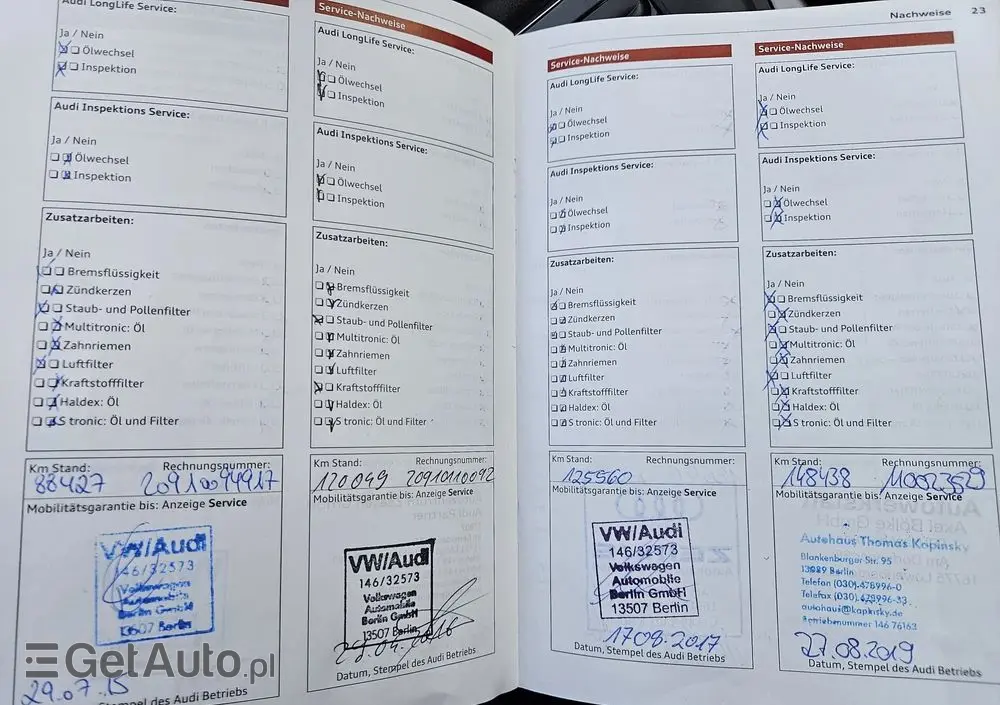 Nachweise 23
Audi LongLife Service:
Ja / Nein
Ölwechsel
Inspektion
Audi Inspektions Service:
Ja / Nein
Ölwechsel
Inspektion
Zusatzarbeiten:
Ja / Nein
Bremsflüssigkeit
Zündkerzen
Staub- und Pollenfilter
Multitronic: Öl
Zahnriemen
Luftfilter
Kraftstofffilter
Haldex: Öl
S tronic: Öl und Filter
Km Stand: Rechnungsnummer:
88427
Mobilitätsgarantie bis: Anzeige Service
VW/Audi
146/32573
Volkswagen
Automobile
Berlin GmbH
13507 Berlin
29.07.15
Datum, Stempel des Audi Betriebs
Service-Nachweise
Audi LongLife Service:
Ja / Nein
Ölwechsel
Inspektion
Audi Inspektions Service:
Ja / Nein
Ölwechsel
Inspektion
Zusatzarbeiten:
Ja / Nein
Bremsflüssigkeit
Zündkerzen
Staub- und Pollenfilter
Multitronic: Öl
Zahnriemen
Luftfilter
Kraftstofffilter
Haldex: Öl
S tronic: Öl und Filter
Km Stand: Rechnungsnummer:
120049 20910110092
Mobilitätsgarantie bis: Anzeige Service
VW/Audi
146/32573
Volkswagen
Automobile
Berlin GmbH
13507 Berlin
Datum, Stempel des Audi Betriebs
Service-Nachweise
Audi LongLife Service:
Ja / Nein
Ölwechsel
Inspektion
Audi Inspektions Service:
Ja / Nein
Ölwechsel
Inspektion
Zusatzarbeiten:
Ja / Nein
Bremsflüssigkeit
Zündkerzen
Staub- und Pollenfilter
Multitronic: Öl
Zahnriemen
Luftfilter
Kraftstofffilter
Haldex: Öl
S tronic: Öl und Filter
Km Stand: Rechnungsnummer:
125560
Mobilitätsgarantie bis: Anzeige Service
VW/Audi
146/32573
Volkswagen
Automobile
Berlin GmbH
13507 Berlin
17.08.2017
Datum, Stempel des Audi Betriebs
Service-Nachweise
Audi LongLife Service:
Ja / Nein
Ölwechsel
Inspektion
Audi Inspektions Service:
Ja / Nein
Ölwechsel
Inspektion
Zusatzarbeiten:
Ja / Nein
Bremsflüssigkeit
Zündkerzen
Staub- und Pollenfilter
Multitronic: Öl
Zahnriemen
Luftfilter
Kraftstofffilter
Haldex: Öl
S tronic: Öl und Filter
Km Stand: Rechnungsnummer:
148438 110023529
Mobilitätsgarantie bis: Anzeige Service
Autohaus Thomas Kapinsky
Blankenburger Str. 95
13089 Berlin
Telefon (030) 478996-0
Telefax (030) 478996-33
autohaus@kapinsky.de
Betriebnummer 146 76163
27.08.2019
Datum, Stempel des Audi Betriebs
GetAuto.pl